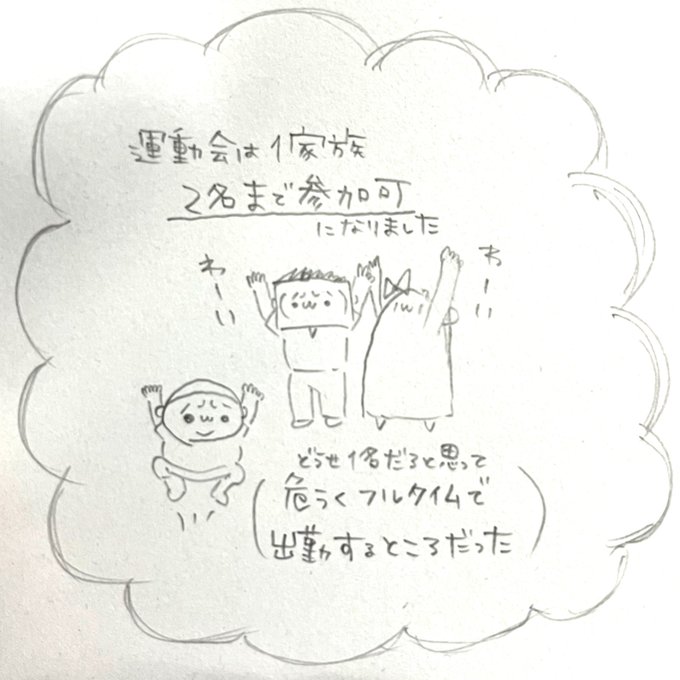 運動会は1家族
2名まで参加可
になりました
わーい
わーい
どうせ1名だろと思って
危うくフルタイムで
出勤するところだった